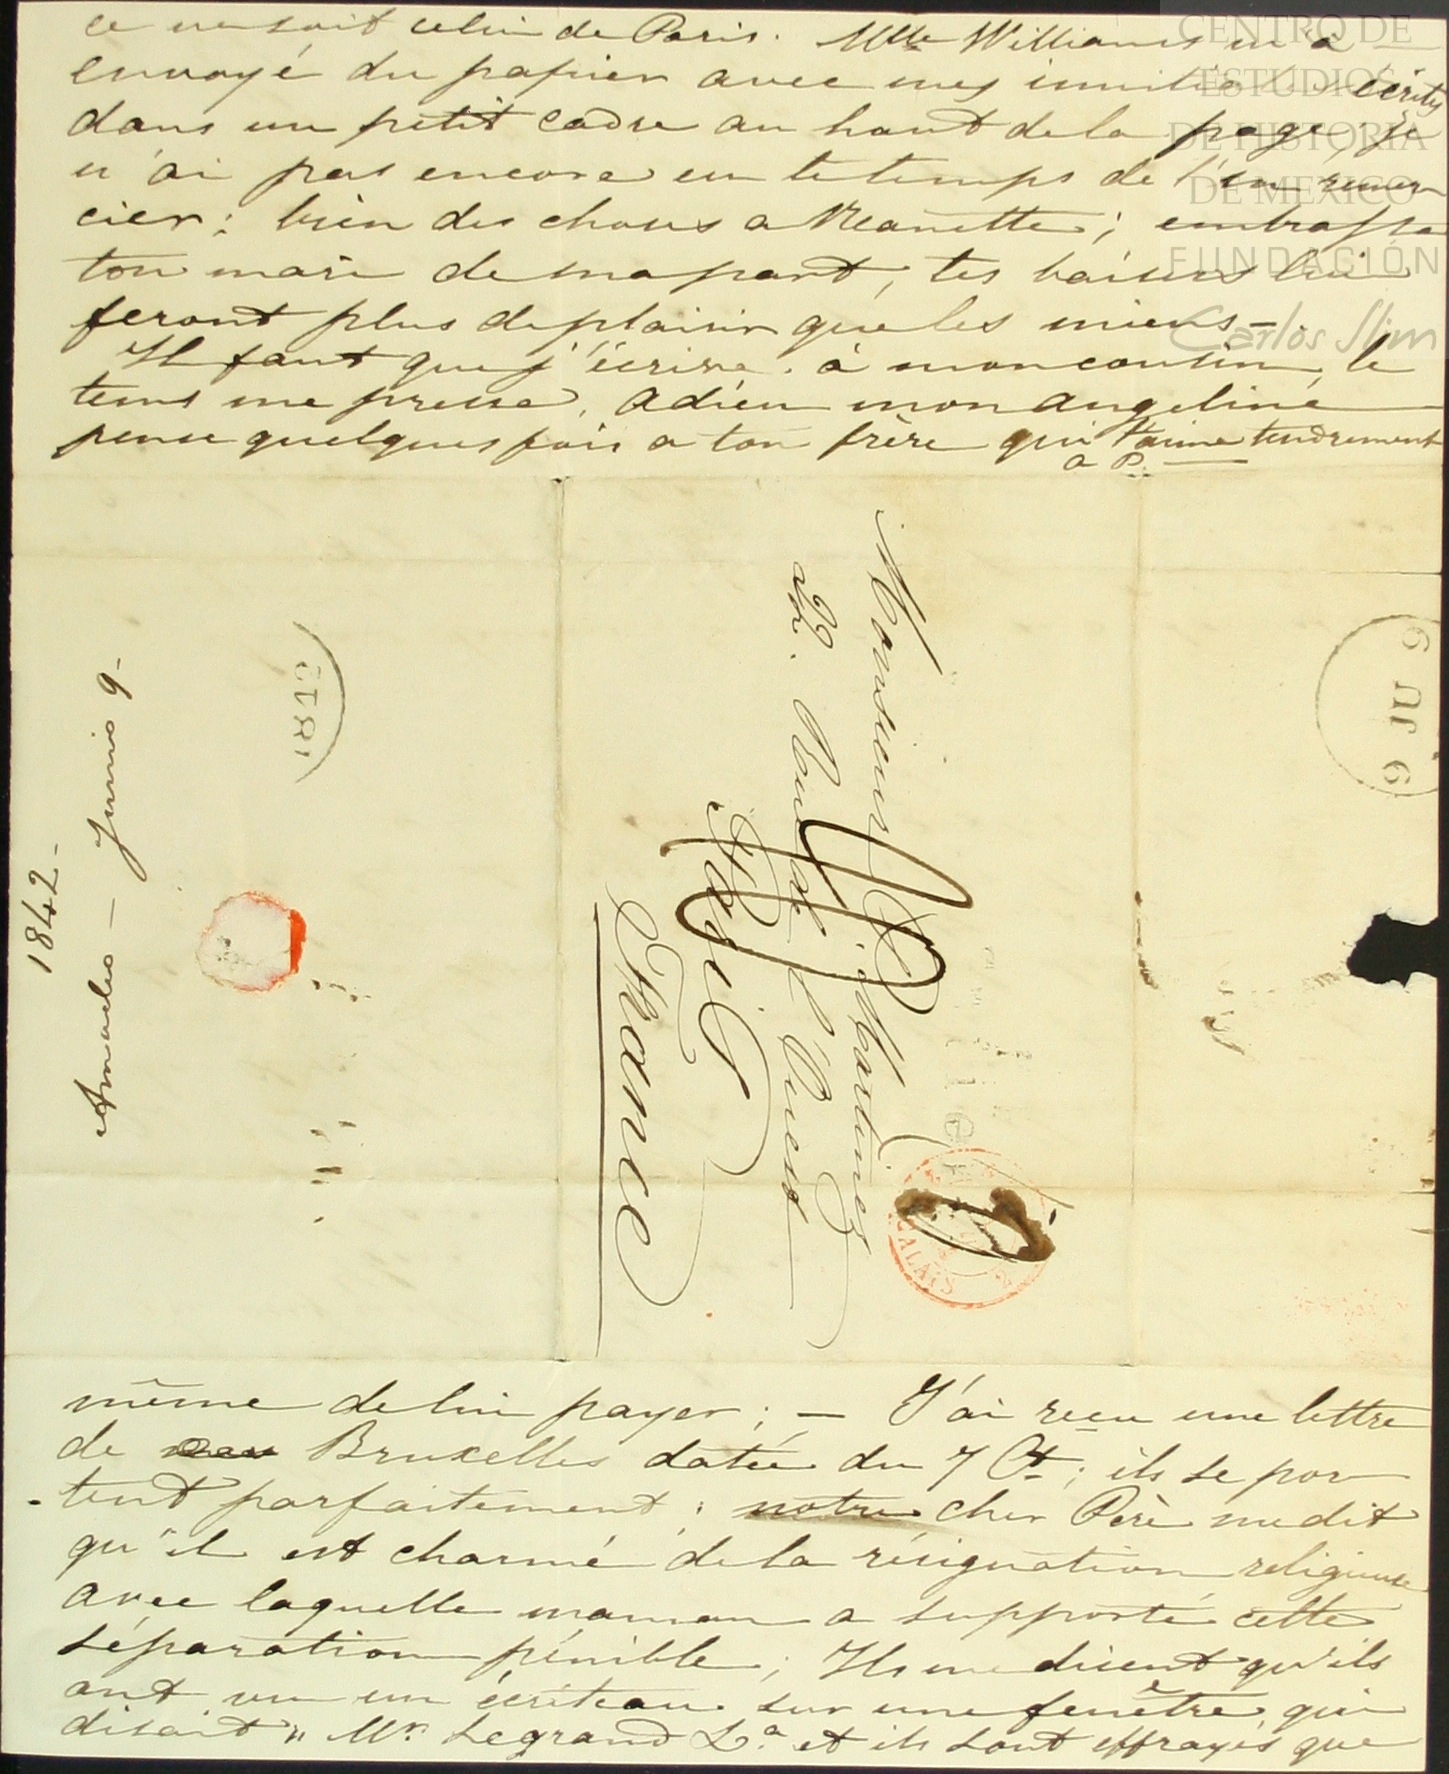 ce ne soit celui de Paris. Mlle Williams m'a
envoyé du papier avec mes écrites
dans un petit cadre au haut de la page; je
n'ai pas encore eu le temps de l'en remer
cier; bien des choses a Nanette; embrasse
ton mari de ma part, tes baisers lui
feront plus de plaisir que les miens —
Il faut que j'écrive à mon cousin, le
tems me presse. Adieu mon angeline
pense quelques fois a ton frère qui t'aime tendrement
a P.
CENTRO DE
ESTUDIOS
DE HISTORIA
DE MEXICO
FUNDACIÓN
Carlos Slim
Monsieur P. Martinez
Rue de l'Ouest
Paris
France
1842
9 JU 9
CALAIS
1842-
Amadeo — Junio 9-
même de lui payer; — J'ai reçu une lettre
de Bruxelles datée du 7 Ct; ils se por
tent parfaitement; notre cher Père me dit
qu'il est charmé de la résignation religieuse
avec laquelle maman a supporté cette
séparation pénible; Ils me disent qu'ils
ont vu un écriteau sur une fenêtre qui
disait " Mr. Legrand La et ils sont effrayés que